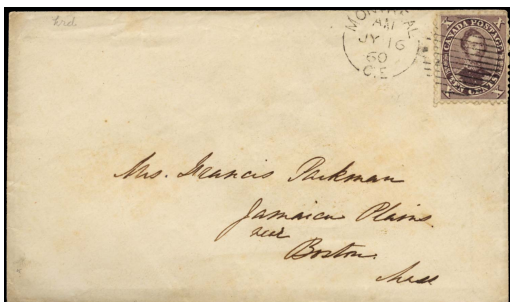 MONTREAL
AM
JY 16
60
C.E.
CANADA POSTAGE
TEN CENTS
Mrs. Francis Parkman
Jamaica Plains
near
Boston
Mass